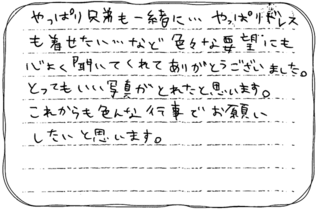 やっぱり兄弟も一緒に… やっぱりドレス
も着せたい…など色々な要望にも
心よく聞いてくれてありがとうございました。
とってもいい写真がとれたと思います。
これからも色んな行事でお願い
したいと思います。